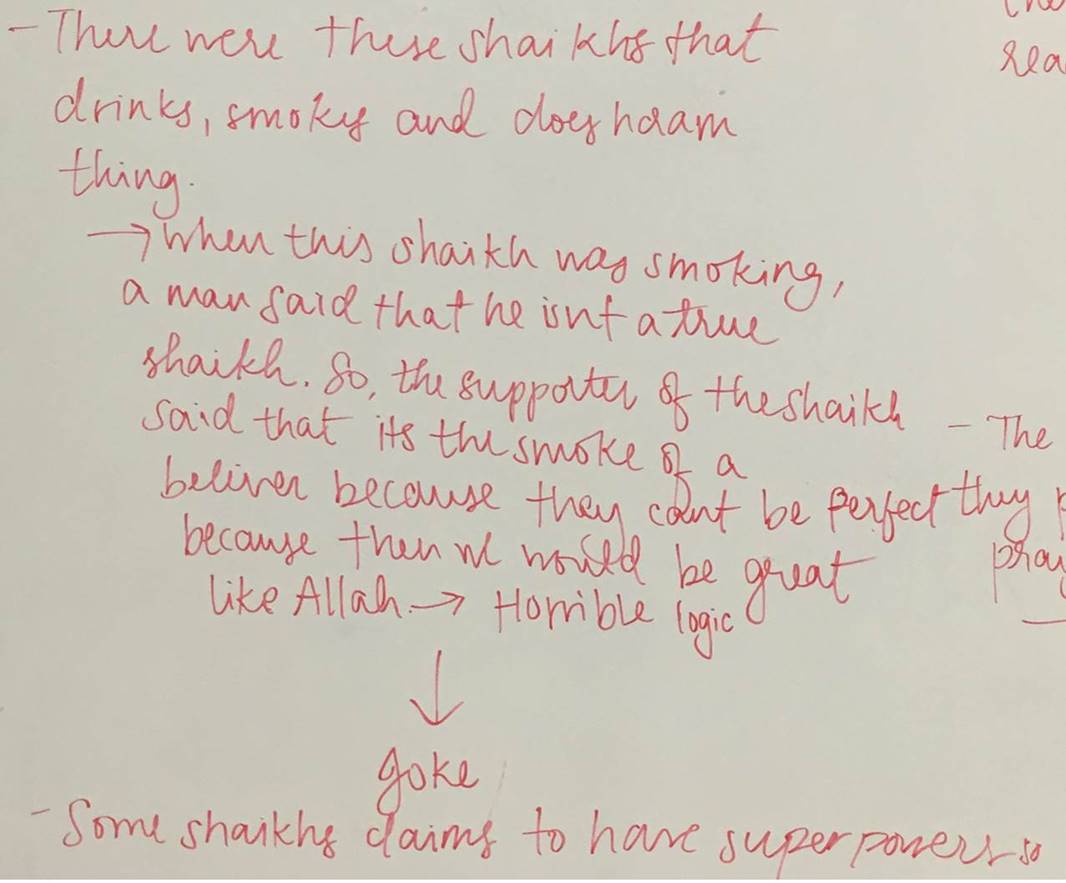 - There were these shaikhs that
drinks, smokes and does haram
thing.
→ when this shaikh was smoking,
a man said that he isnt a true
shaikh. So, the supporter of the shaikh
said that its the smoke of a
beliver because they cant be perfect
because then we would be great
like Allah → Horrible logic
↓
goke
- Some shaikhs claims to have superpowers so
- The
they
pray
rea